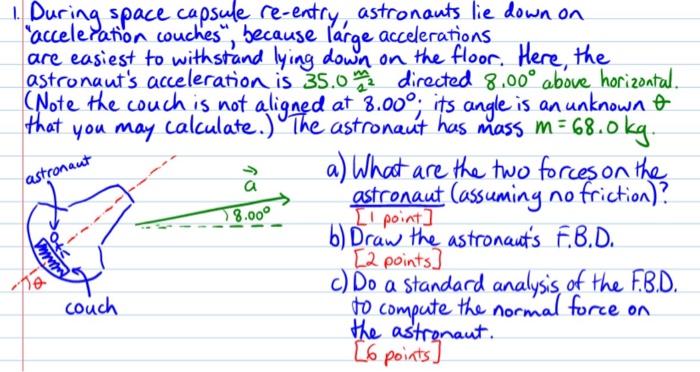 1. During space capsule re-entry, astronauts lie down on
"acceleration couches", because large accelerations
are easiest to withstand lying down on the floor. Here, the
astronaut's acceleration is 35.0 m/s² directed 8.00° above horizontal.
(Note the couch is not aligned at 8.00°; its angle is an unknown θ
that you may calculate.) The astronaut has mass m = 68.0 kg.
astronaut
a
8.00°
θ
couch
a) What are the two forces on the
astronaut (assuming no friction)?
[1 point]
b) Draw the astronaut's F.B.D.
[2 points]
c) Do a standard analysis of the F.B.D.
to compute the normal force on
the astronaut.
[6 points]